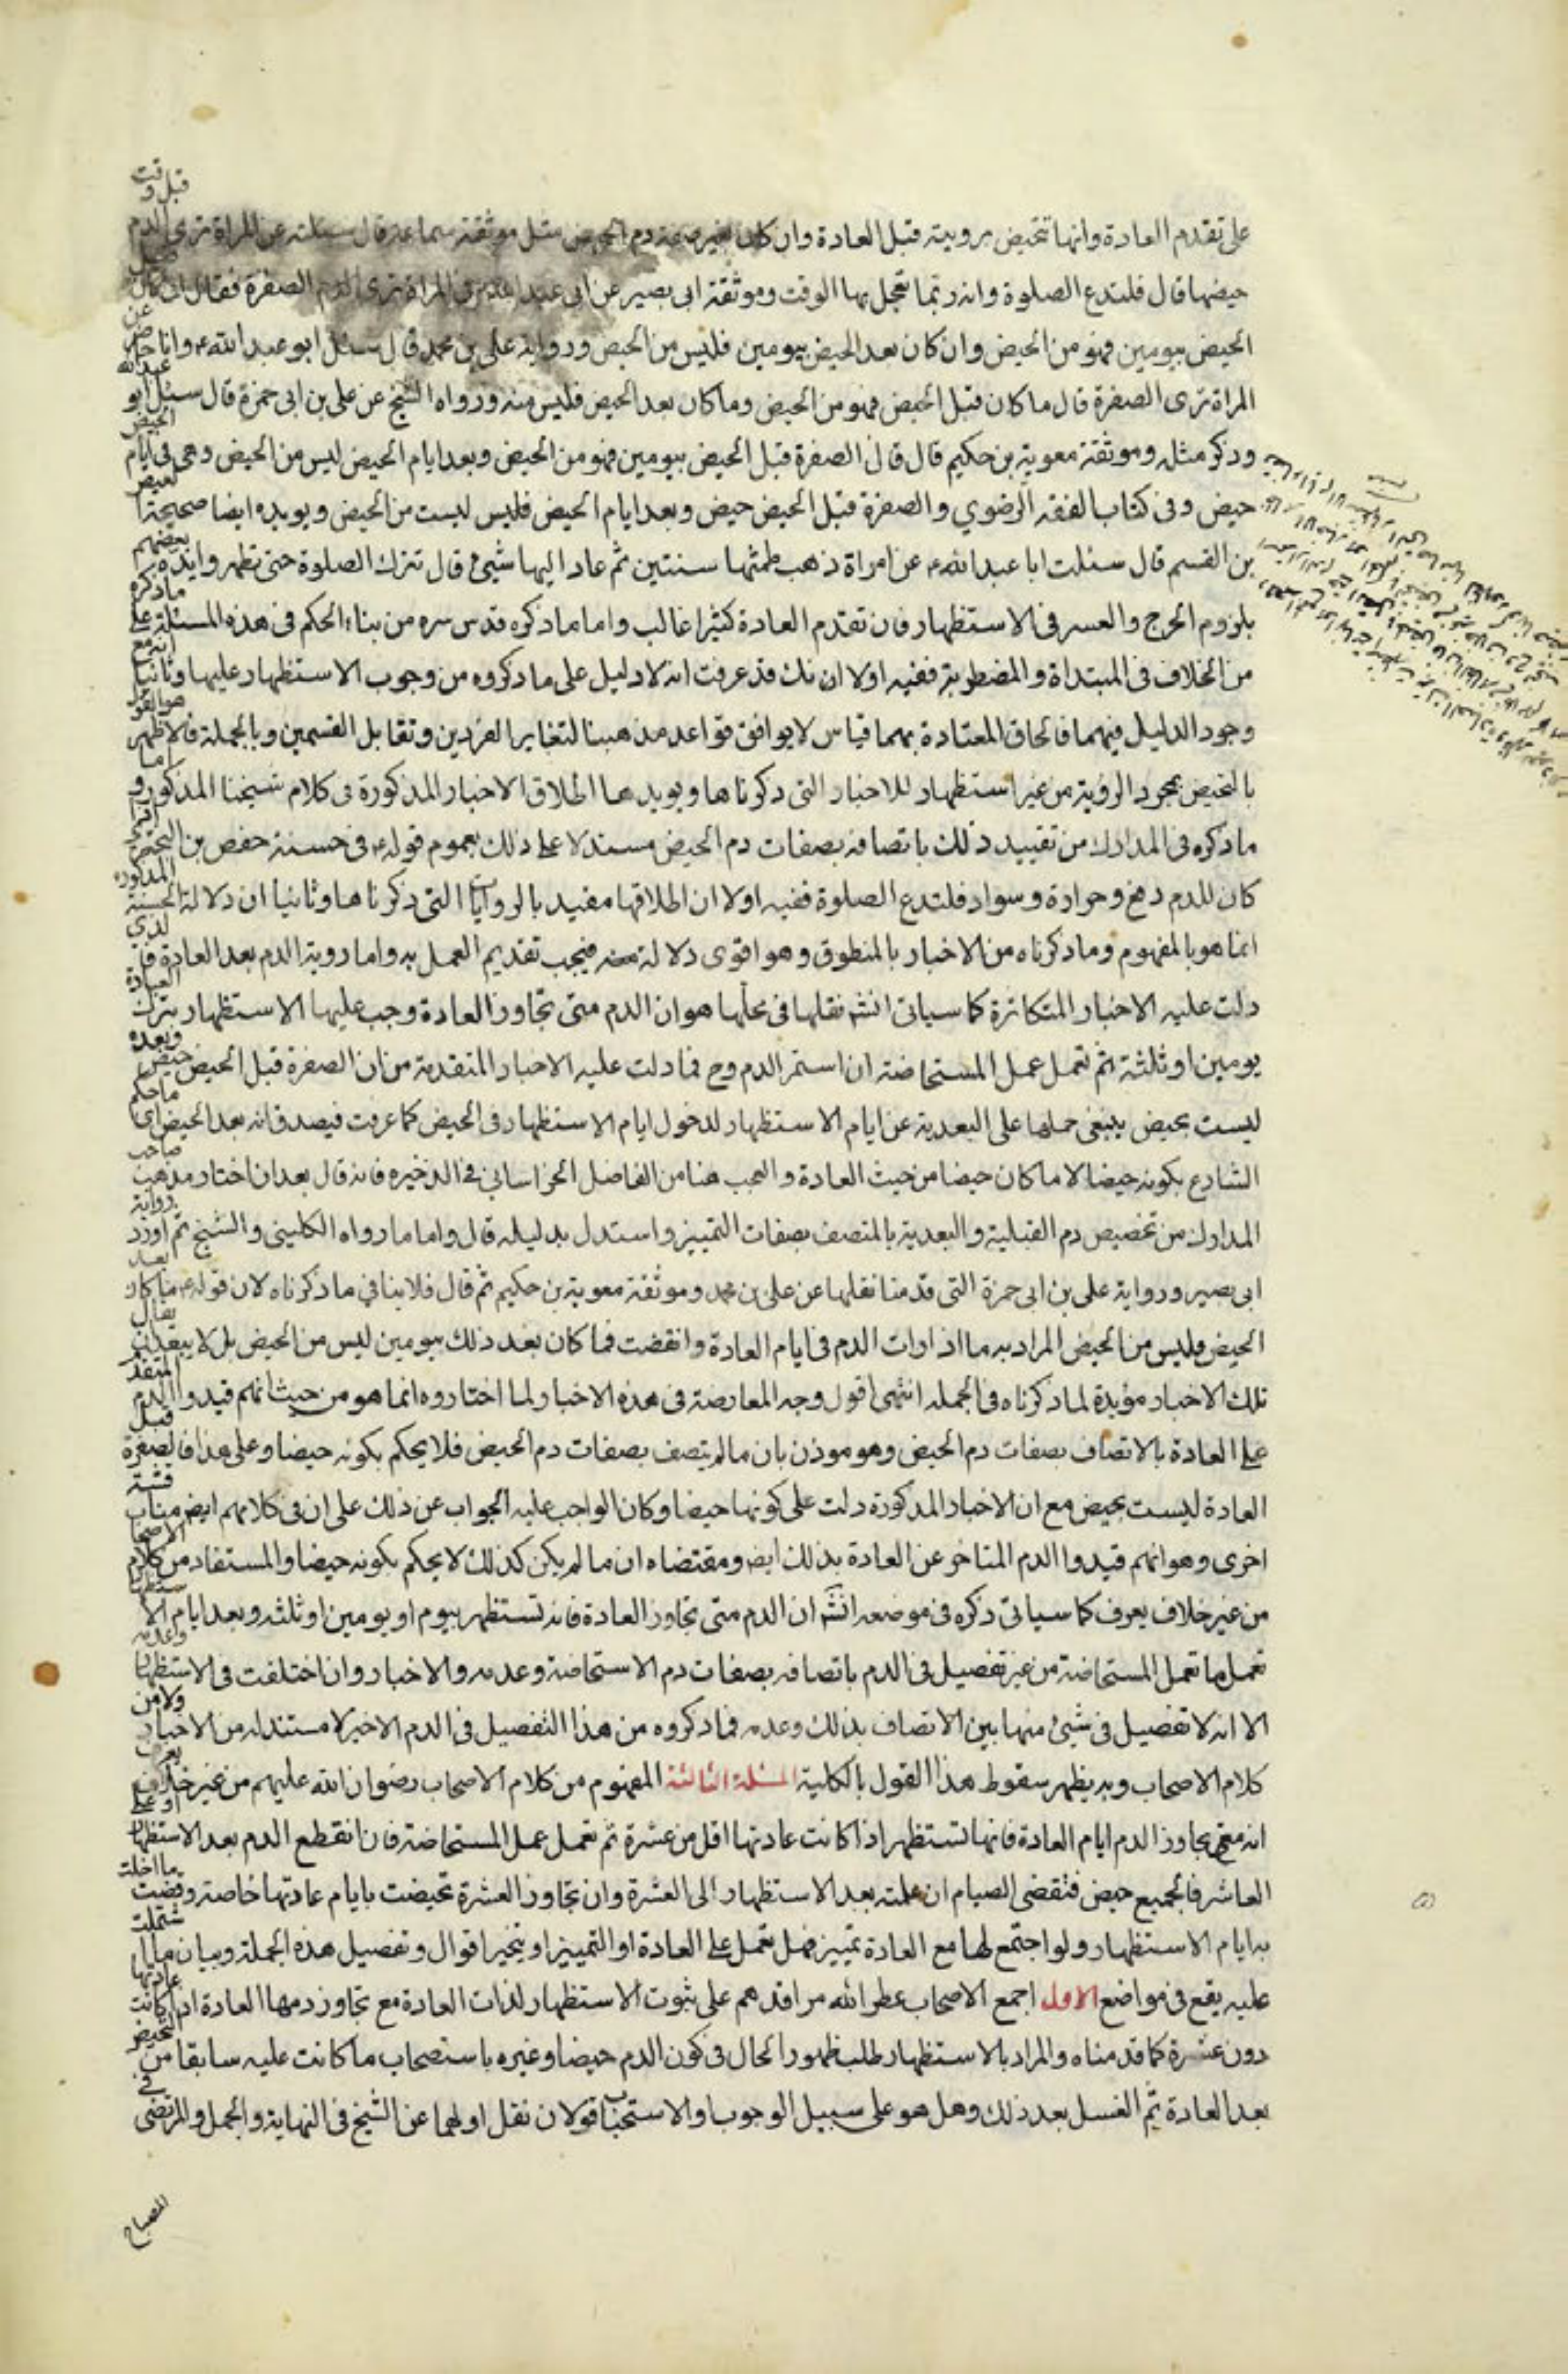 على تقدم العادة وانها تتحيض برويته قبل العادة وان كان بغير صفة دم الحيض مثل موثقة سماعة قال سئلته عن المراة ترى الدم قبل وقت
حيضها قال فلتدع الصلوة وانه ربما تعجل بها الوقت وموثقة ابى بصير عن ابى عبد الله ع فى المراة ترى الصفرة فقال ان كان قبل
الحيض بيومين فهو من الحيض وان كان بعد الحيض بيومين فليس من الحيض ورواية على بن محمد قال سئل ابو عبد الله ع وانا حاضر عن
المراة ترى الصفرة قال ما كان قبل الحيض فهو من الحيض وما كان بعد الحيض فليس منه ورواه الشيخ عن على بن ابى حمزة قال سئل ابو عبد الله
وذكر مثله وموثقة معوية بن حكيم قال قال الصفرة قبل الحيض بيومين فهو من الحيض وبعد ايام الحيض ليس من الحيض وهى فى ايام الحيض
حيض وفى كتاب الفقه الرضوي والصفرة قبل الحيض حيض وبعد ايام الحيض فليس ليست من الحيض ويويده ايضا صحيحة العيص
بن القسم قال سئلت ابا عبد الله ع عن امراة ذهب طمثها سنتين ثم عاد اليها شيئ قال تترك الصلوة حتى تطهر وايده بعضهم
بلزوم الحرج والعسر فى الاستظهار فان تقدم العادة كثيرا غالب واما ما ذكره قدس سره من بناء الحكم فى هذه المسئلة على ما ذكره
من الخلاف فى المبتداة والمضطوبة ففيه اولا انك قد عرفت انه لا دليل على ما ذكروه من وجوب الاستظهار عليها وثانيا انه مع
وجود الدليل فيهما فالحاق المعتادة بهما قياس لا يوافق قواعد مذهبنا لتغاير الفردين وتقابل القسمين وبالجملة فالاظهر هو القول
بالتحيض بمجرد الروية من غير استظهار للاخبار التى ذكرناها ويويدها اطلاق الاخبار المذكورة فى كلام شيخنا المذكور واما
ما ذكره فى المدارك من تقييد ذلك باتصافه بصفات دم الحيض مستدلا على ذلك بعموم قوله ع فى حسنة حفص بن البختري اذا
كان للدم دفع وحرارة وسواد فلتدع الصلوة ففيه اولا ان اطلاقها مقيد بالروايات التى ذكرناها وثانيا ان دلالة الحسنة المذكورة
انما هو بالمفهوم وما ذكرناه من الاخبار بالمنطوق وهو اقوى دلالة منه فيجب تقديم العمل به واما روية الدم بعد العادة فالذى
دلت عليه الاخبار المتكاثرة كما سياتى انشه نقلها فى محلها هو ان الدم متى تجاوز العادة وجب عليها الاستظهار بترك العبادة
يومين او ثلثة ثم تعمل عمل المستحاضة ان استمر الدم وح فما دلت عليه الاخبار المتقدمة من ان الصفرة قبل الحيض حيض وبعده
ليست بحيض ينبغى حملها على البعدية عن ايام الاستظهار لدخول ايام الاستظهار فى الحيض كما عرفت فيصدق انه بعد الحيض اى ما حكم
الشارع بكونه حيضا لا ما كان حيضا من حيث العادة والعجب هنا من الفاضل الخراسانى فى الذخيره فانه قال بعد ان اختار مذهب صاحب
المدارك من تخصيص دم القبلية والبعدية بالمتصف بصفات التمييز واستدل بدليله قال واما ما رواه الكلينى والشيخ ثم اورد رواية
ابى بصير ورواية على بن ابى حمزة التى قدمنا نقلها عن على بن محمد وموثقة معوية بن حكيم ثم قال فلا ينافي ما ذكرناه لان قوله ع ما كان بعد
الحيض فليس من الحيض المراد به ما اذا رات الدم فى ايام العادة وانقضت فما كان بعد ذلك بيومين ليس من الحيض بل لا يبعد ان يقال
تلك الاخبار مؤيدة لما ذكرناه فى الجمله انتهى اقول وجه المعارضة فى هذه الاخبار لما اختاروه انما هو من حيث انهم قيدوا الدم المتقدم
على العادة بالاتصاف بصفات دم الحيض وهو موذن بان ما لم يتصف بصفات دم الحيض فلا يحكم بكونه حيضا وعلى هذا فالصفرة قبل
العادة ليست بحيض مع ان الاخبار المذكورة دلت على كونها حيضا وكان الواجب عليه الجواب عن ذلك على ان فى كلامهم ايض مناقشة
اخرى وهو انهم قيدوا الدم المتاخر عن العادة بذلك ايض ومقتضاه ان ما لم يكن كذلك لا يحكم بكونه حيضا والمستفاد من كلام الاصحاب
من غير خلاف يعرف كما سياتى ذكره فى موضعه انشه ان الدم متى تجاوز العادة فانه تستظهر بيوم او يومين او ثلثه وبعد ايام الاستظهار
تعمل ما تعمل المستحاضة من غير تفصيل فى الدم باتصافه بصفات دم الاستحاضة وعدمه والاخبار وان اختلفت فى الاستظهار وعدمه
الا انه لا تفصيل فى شيئ منها بين الاتصاف بذلك وعدمه فما ذكروه من هذا التفصيل فى الدم الاخير لا مستند له من الاخبار ولا من
كلام الاصحاب وبه يظهر سقوط هذا القول بالكلية المسئلة الثالثة المفهوم من كلام الاصحاب رضوان الله عليهم من غير خلاف يعرف
انه متى تجاوز الدم ايام العادة فانها تستظهر اذا كانت عادتها اقل من عشرة ثم تعمل عمل المستحاضة فان انقطع الدم بعد الاستظهار او على
العاشر فالجميع حيض فتقضى الصيام ان عملته بعد الاستظهار الى العشرة وان تجاوز العشرة تحيضت بايام عادتها خاصة وقضت ما اخلت
به ايام الاستظهار ولو اجتمع لها مع العادة تمييز فهل تعمل على العادة او التمييز او يتخير اقوال وتفصيل هذه الجملة وبيان ما اشتملت
عليه يقع فى مواضع الاول اجمع الاصحاب عطر الله مراقدهم على ثبوت الاستظهار لذات العادة مع تجاوز دمها العادة اذا كانت عادتها
دون عشرة كما قدمناه والمراد بالاستظهار طلب ظهور الحال فى كون الدم حيضا وغيره باستصحاب ما كانت عليه سابقا من التحيض
بعد العادة ثم الغسل بعد ذلك وهل هو على سبيل الوجوب او الاستحباب قولان نقل اولهما عن الشيخ فى النهاية والجمل والمرتضى فى
المصباح